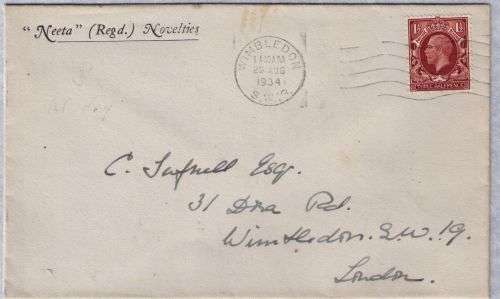 "Neeta" (Regd.) Novelties
WIMBLEDON
11 AM
25 AUG
1934
S.W.19.
1½
C. Tufnell Esq.
31 Dora Rd.
Wimbledon. S.W. 19.
London.